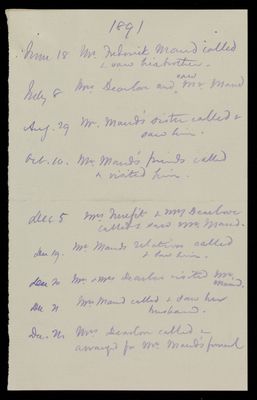 1891
June 18 Mr. Frederick Maund called
& saw his brother.
July 8 Mrs. Dearlove and saw Mr. Maund
Aug. 29 Mr. Maund's sister called &
saw him.
Oct. 10. Mr. Maund's friends called
& visited him.
Dec 5 Mrs & Mrs Dearlove
called & saw Mr Maund.
Dec 19. Mr Maunds relatives called
& saw him.
Dec 20 Mr & Mrs Dearlove visited Mr.
Maund.
Dec 21 Mrs Maund called & saw her
husband.
Dec. Mrs Dearlove called &
arranged for Mr Maund's funeral